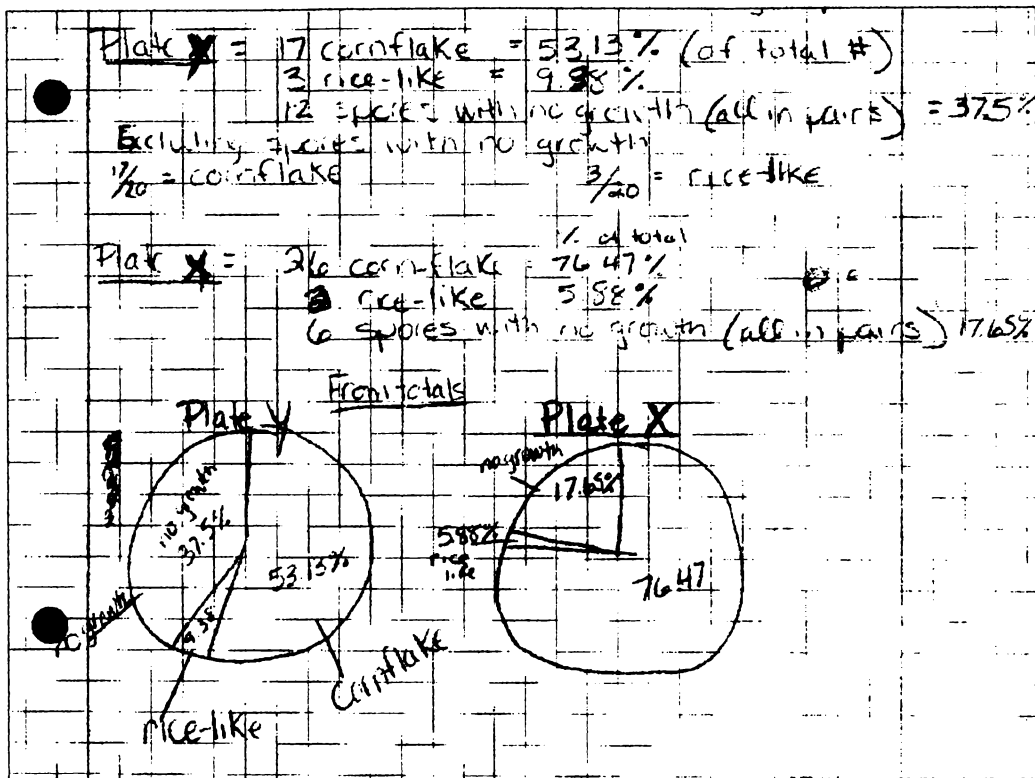 Plate X = 17 cornflake = 53.13% (of total #)
3 rice-like = 9.38%
12 spores with no growth (all in pairs) = 37.5%
Excluding spores with no growth
17/20 = cornflake 3/20 = rice-like
% of total
Plate X = 26 corn-flake = 76.47%
2 rice-like 5.88%
6 spores with no growth (all in pairs) 17.65%
From totals
Plate Y Plate X
no growth
37.5%
53.13%
9.38
no growth
rice-like
Cornflake
no growth
17.65%
5.88%
rice
like
76.47